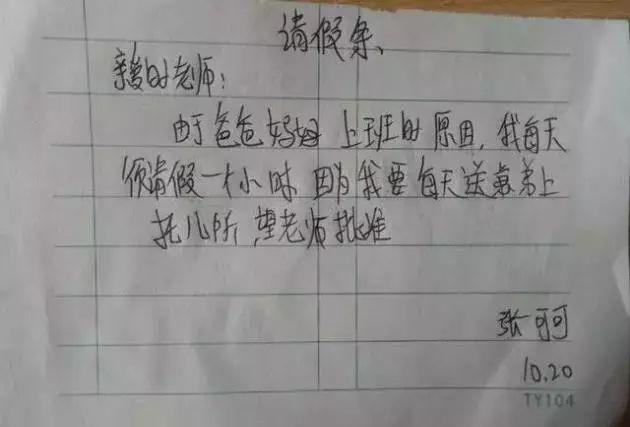 请假条
亲爱的老师：
由于爸爸妈妈上班的原因，我每天
须请假一个小时因为我要每天送弟弟上
托儿所，望老师批准
张可可
10.20
TY104